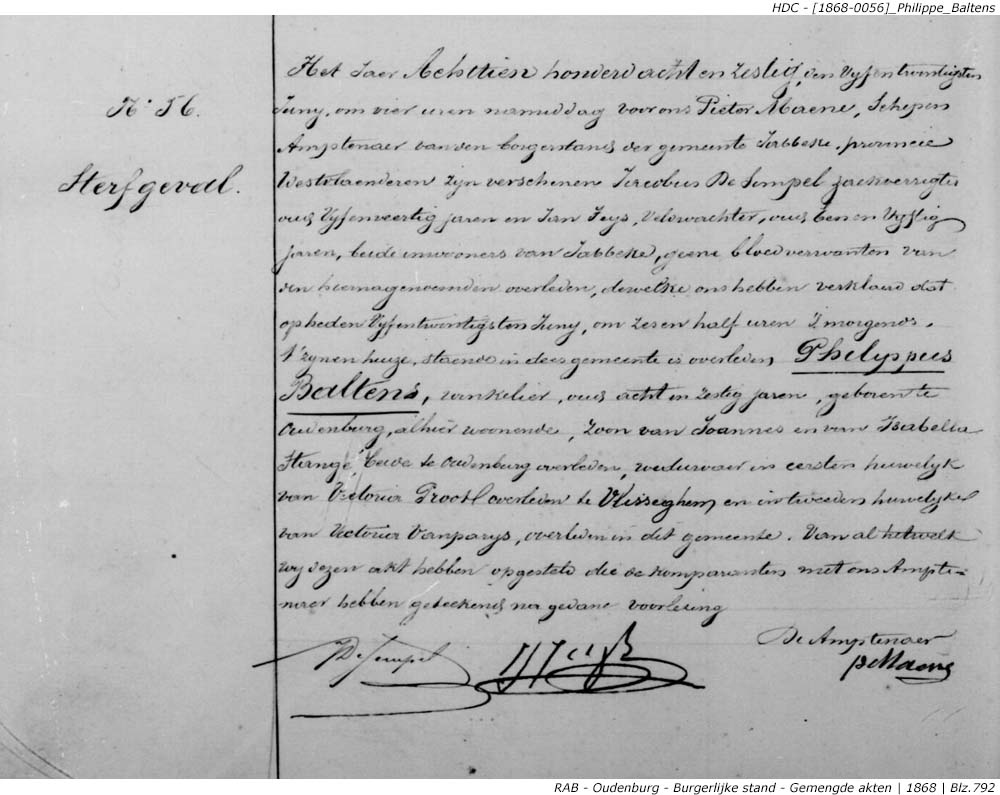 HDC - [1868-0056]_Philippe_Baltens
N° 56.
Sterfgeval.
Het Jaer Achttien honderd acht en zestig, den Vyfentwintigsten
Juny, om vier uren namiddag voor ons Pieter Maene, Schepen
Amptenaer van den borgerstand der gemeente Jabbeke, provincie
Westvlaenderen zyn verschenen Jacobus De Simpel zaekverrigter
oud Vyfenveertig jaren en Jan Feys, Veldwachter, oud een en Vyftig
jaren, beide inwooners van Jabbeke, geene bloedverwanten van
den hiernagenoemden overleden, dewelke ons hebben verklaerd dat
op heden Vyfentwintigsten Juny, om zesen half uren 's morgends,
t' zynen huize, staende in dees gemeente is overleden Philyppus
Baltens, winkelier, oud acht en zestig jaren, geboren te
Oudenburg, alhier woonende, Zoon van Joannes en van Isabella
Stange, beide te Oudenburg overleden, weduwaer in eersten huwelyk
van Victoria Proost overleden te Vlisseghem, en in tweeden huwelyke
van Victoria Vanparys, overleden in dit gemeente. Van al hetwelk
wy dezen akt hebben opgesteld die de komparanten met ons Ampte-
naer hebben geteekend na gedane voorlezing
De Amptenaer
De Simpel J Feys P Maene
RAB - Oudenburg - Burgerlijke stand - Gemengde akten | 1868 | Blz.792